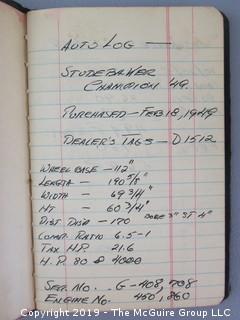 AUTO LOG —
STUDEBAKER
CHAMPION '49.
PURCHASED - FEB 18, 1949
DEALER'S TAGS - D1512
WHEEL BASE - 112"
LENGTH - 190 5/8"
WIDTH - 69 3/4"
HT - 60 3/4"
DIST. DISP'D - 170 BORE 3" ST 4"
COMP. RATIO 6.5-1
TAX H.P. 21.6
H.P. 80 @ 4000
SER. NO. - G-408,708
ENGINE NO. 450,860
Copyright 2019 - The McGuire Group LLC